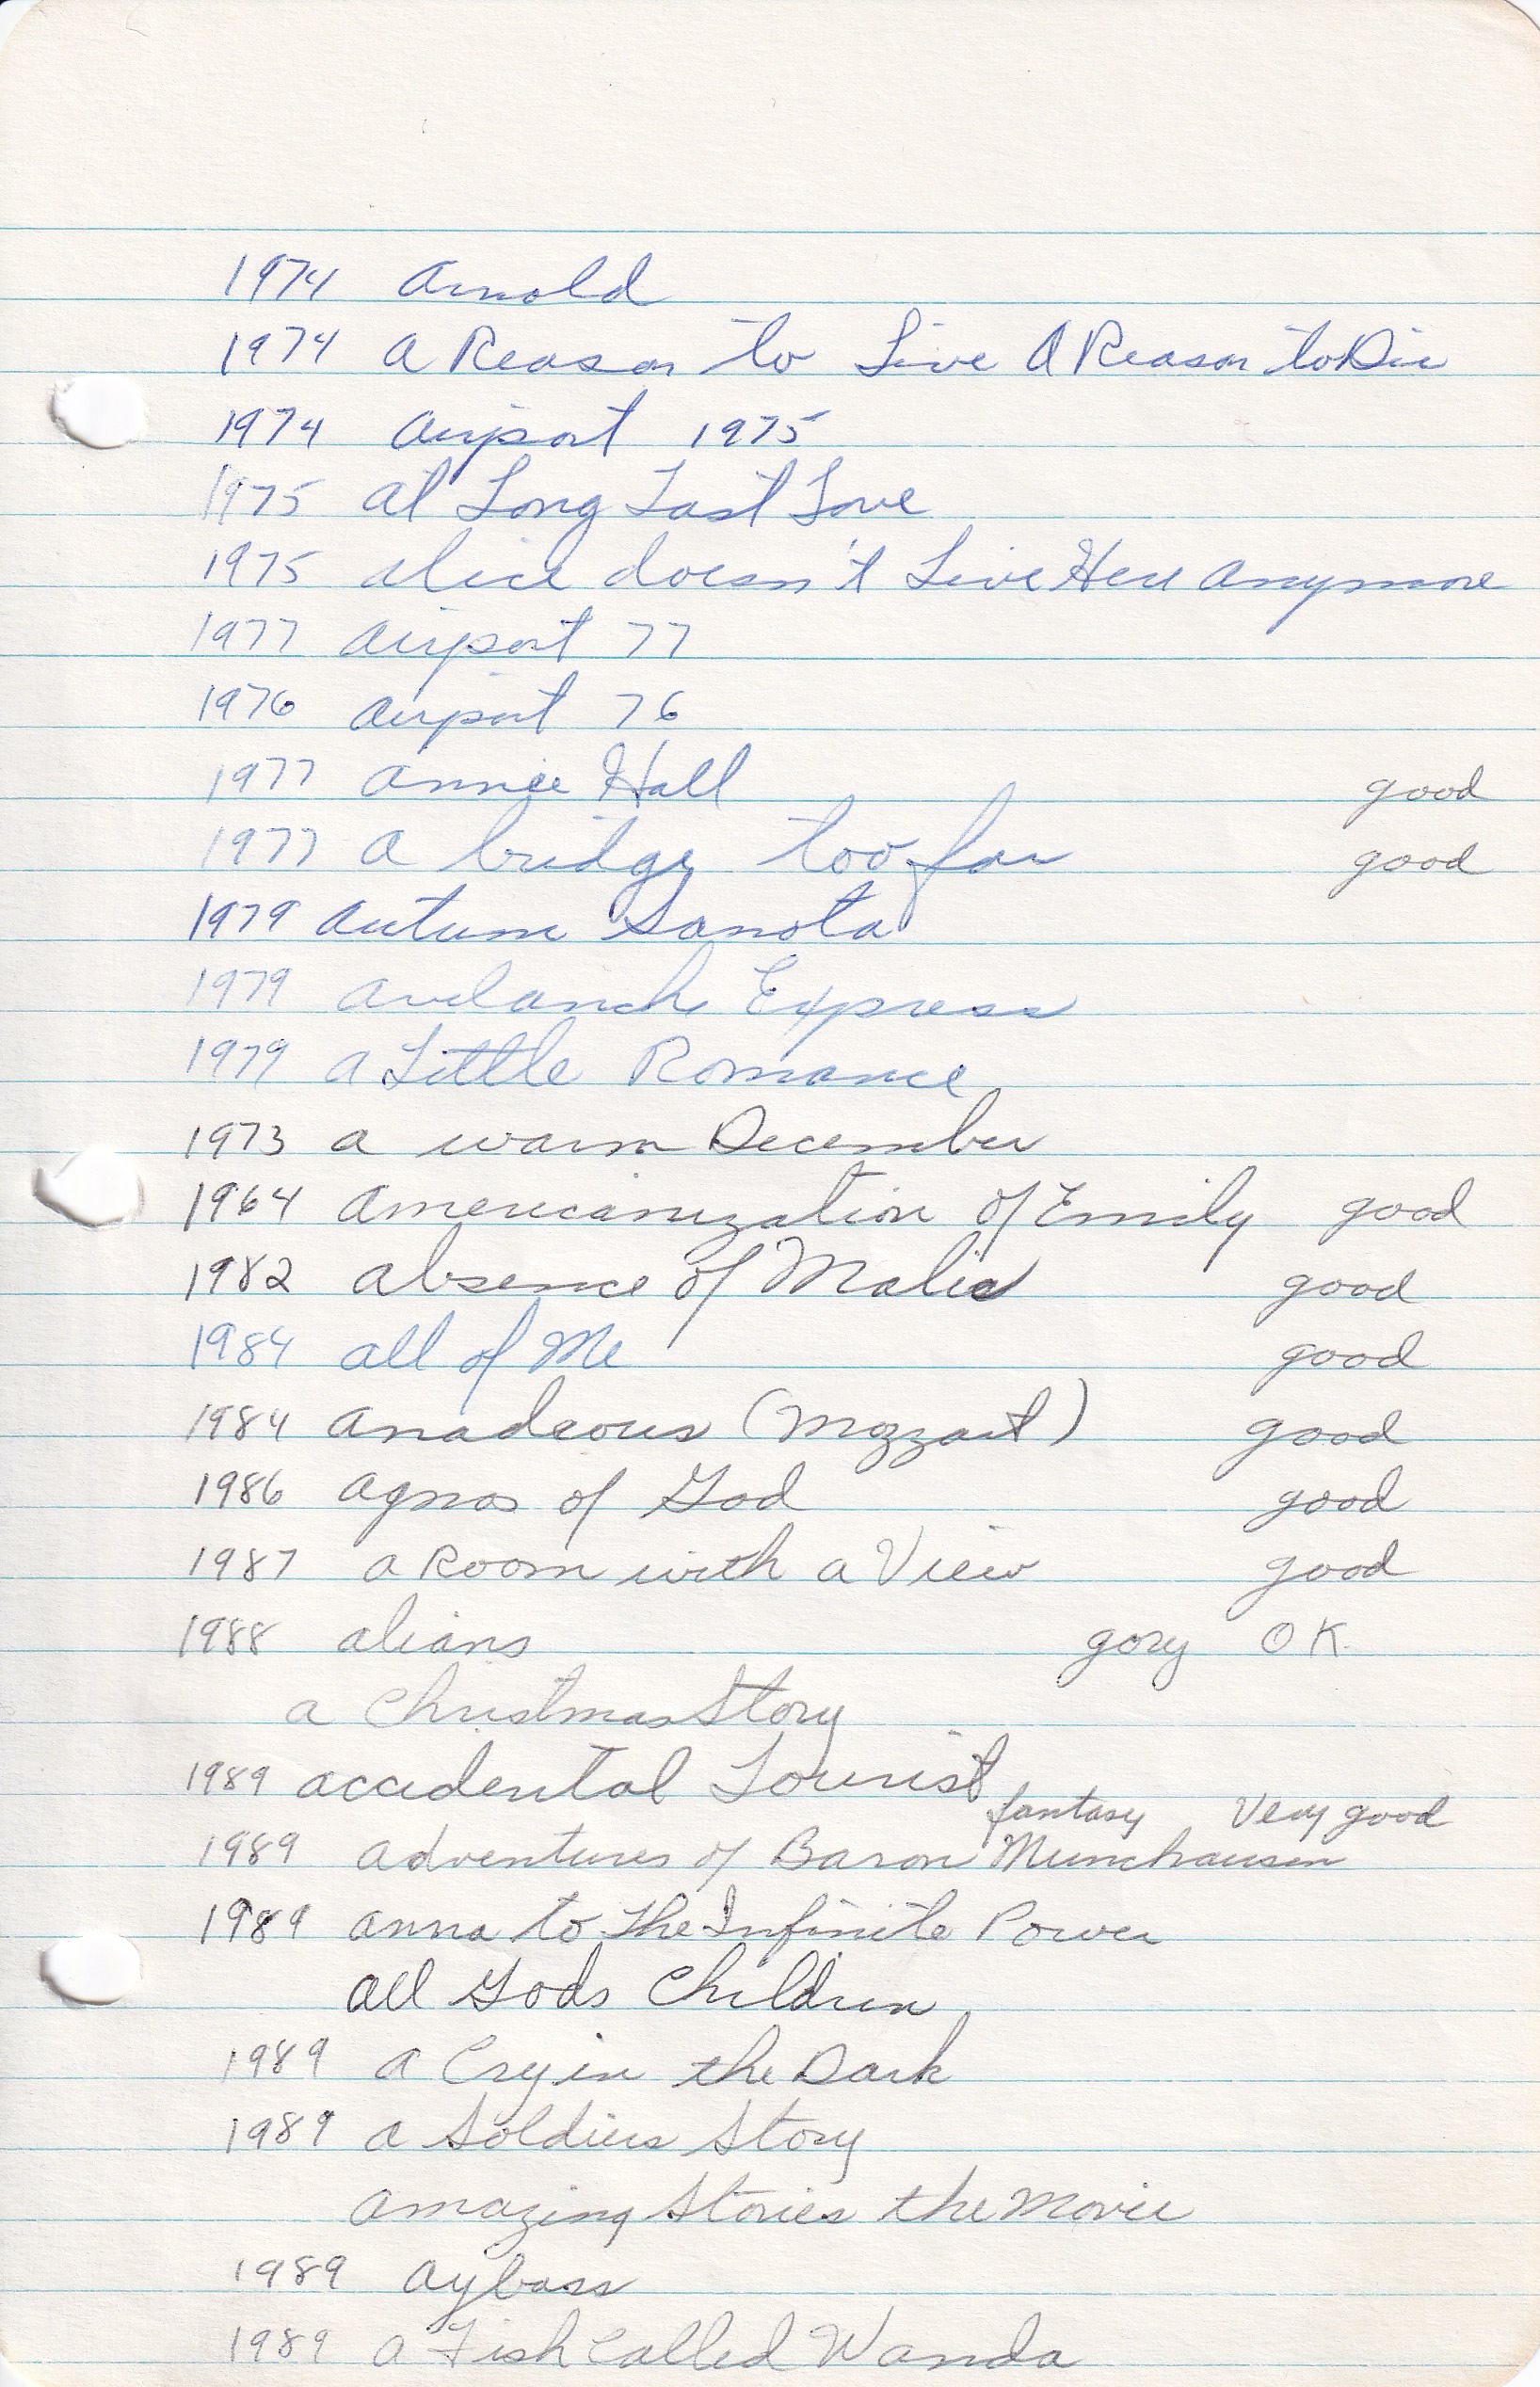 1974 Arnold
1974 A Reason to Live A Reason to Die
1974 Airport 1975
1975 At Long Last Love
1975 Alice doesn't Live Here Anymore
1977 Airport 77
1976 Airport 76
1977 Annie Hall good
1977 A bridge too far good
1979 Autumn Sanota
1979 Avelanch Express
1979 A Little Romance
1973 A warm December
1964 Americanization of Emily good
1982 Absence of Malice good
1984 All of Me good
1984 Amadeous (Mozzart) good
1986 Agnas of God good
1987 A Room with a View good
1988 Alians gory OK.
A Christmas Story
1989 Accidental Tourist
fantasy Very good
1989 Adventures of Baron Munchausen
1989 Anna to The Infinite Power
All Gods Children
1989 A Cry in the Dark
1989 A Soldiers Story
Amazing Stories the Movie
1989 Aybass
1989 A Fish Called Wanda